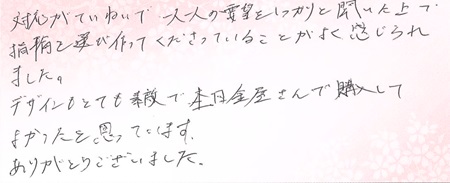 対応がていねいで 大人の要望をしっかりと聞いた上で
指輪を選び作ってくださっていることがよく感じられ
ました。
デザインもとても素敵で本日金屋さんで購入して
よかったと思っています。
ありがとうございました。